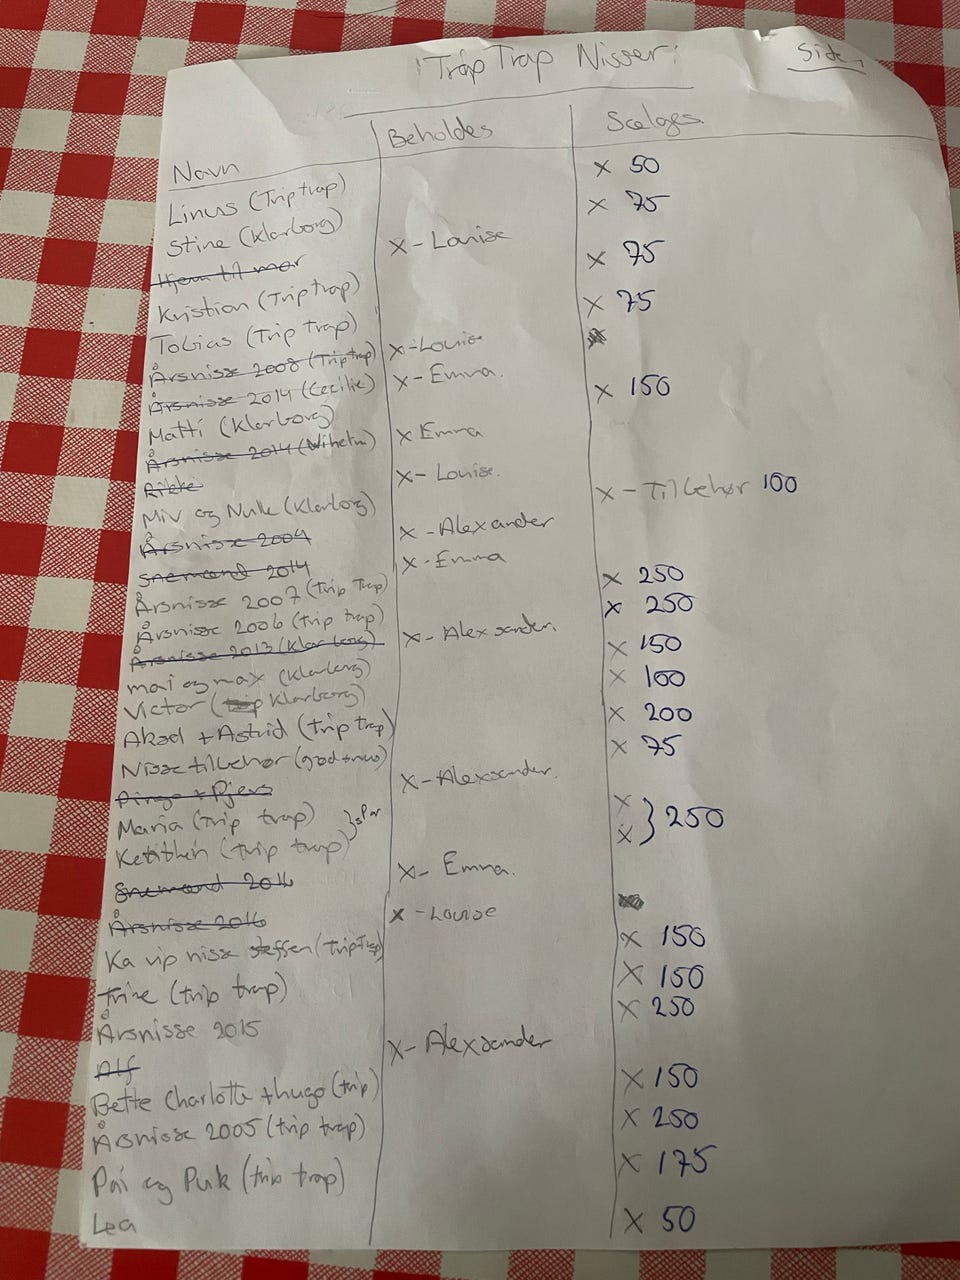 Trip Trap Nisser:
Side 1
Navn Beholdes Sælges
Linus (Trip trap) x 50
Stine (Klarborg) x 75
Hjem til mor x - Louise
Kristian (Trip trap) x 75
Tobias (Trip trap) x 75
Årsnisse 2008 (Trip trap) x - Louise
Årsnisse 2014 (Cecilie) x - Emma.
Matti (Klarborg) x 150
Årsnisse 2014 (Vilhelm) x Emma
Rikke x - Louise.
Miv og Nulle (Klarborg) x - Tilbehør 100
Årsnisse 2004 x - Alexander
Snemand 2014 x - Emma
Årsnisse 2007 (Trip Trap) x 250
Årsnisse 2006 (trip trap) x 250
Årsnisse 2013 (Klarborg) x - Alexsander.
mai og max (Klarborg) x 150
Victor (trip Klarborg) x 100
Aksel + Astrid (trip trap) x 200
Nisse tilbehør (god + mus) x 75
Pingo + Pjevs x - Alexsander.
Maria (trip trap) } par x } 250
(trip trap) x
Snemand 2016 x - Emma.
Årsnisse 2016 x - Louise
Ka vip nisse steffen (Trip Trap) x 150
Trine (trip trap) x 150
Årsnisse 2015 x 250
Alf x - Alexsander
Bette Charlotte + hugo (trip) x 150
Årsnisse 2005 (trip trap) x 250
Pai og Puk (trip trap) x 175
Lea x 50